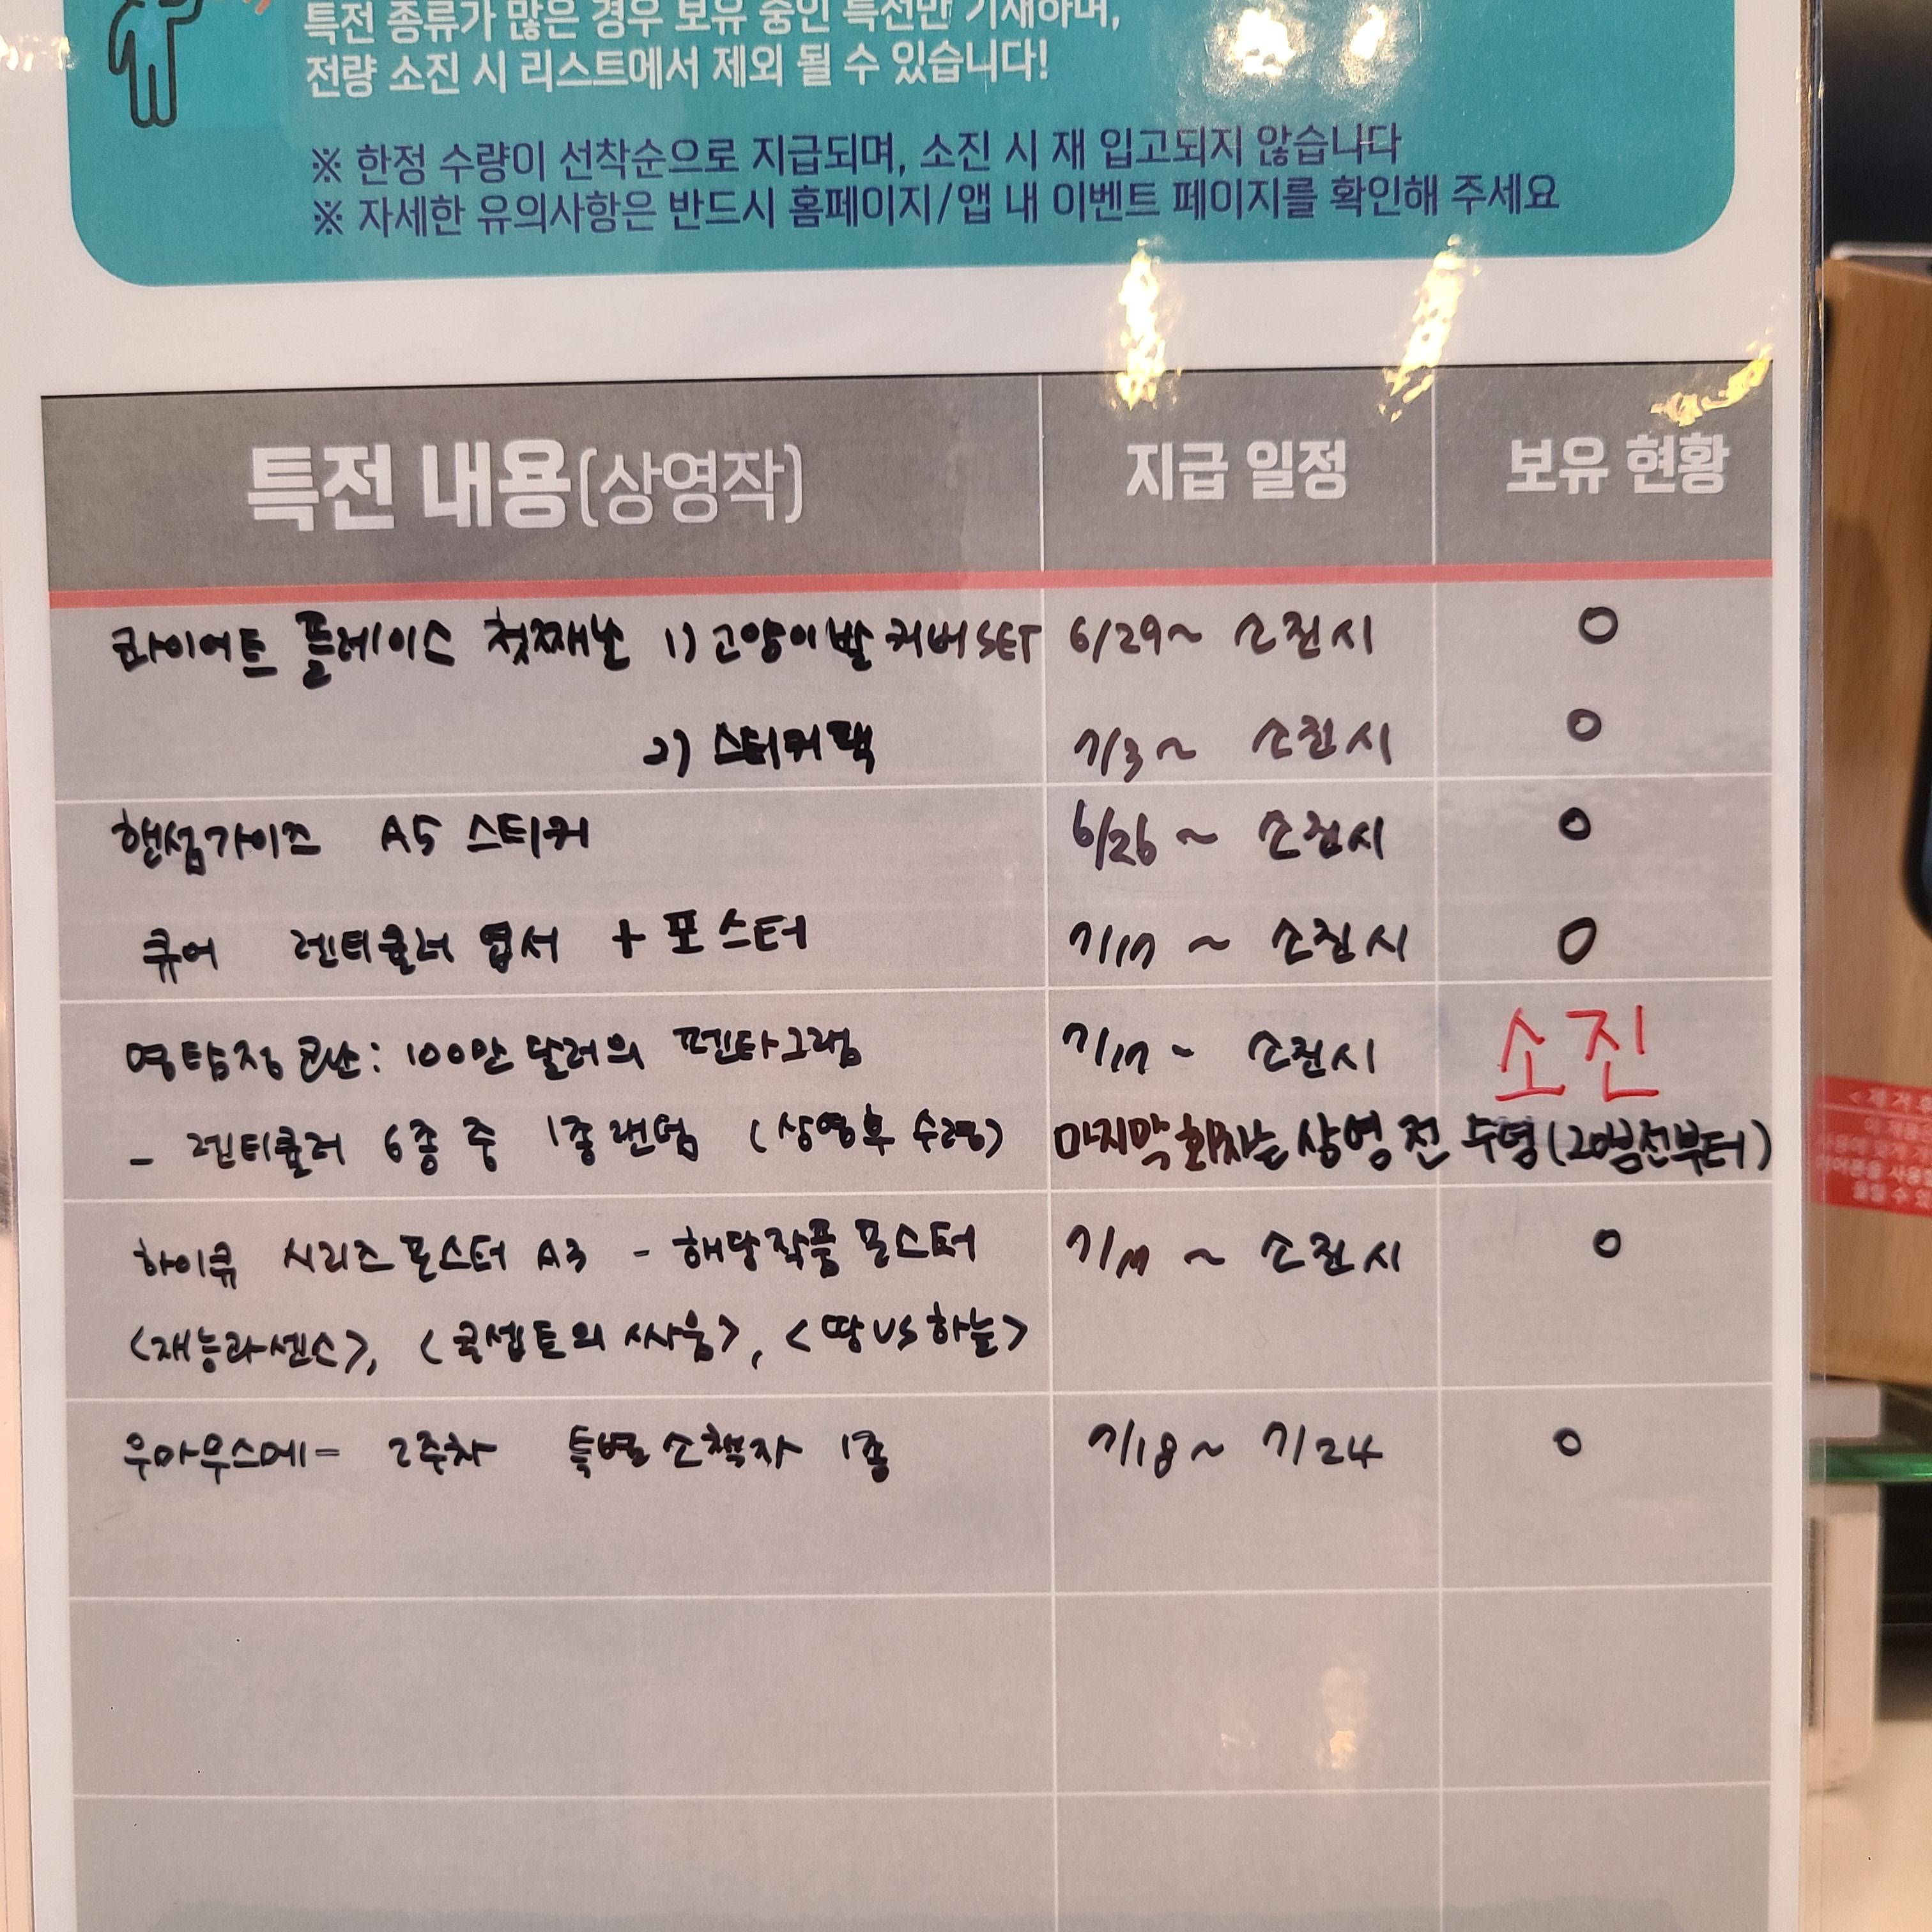 특전 종류가 많은 경우 보유 중인 특전만 기재하며,
전량 소진 시 리스트에서 제외 될 수 있습니다!
※ 한정 수량이 선착순으로 지급되며, 소진 시 재 입고되지 않습니다
※ 자세한 유의사항은 반드시 홈페이지/앱 내 이벤트 페이지를 확인해 주세요
특전 내용(상영작) 지급 일정 보유 현황
콰이어트 플레이스 첫째날 1) 고양이발 커버 SET 6/29~ 소진시 O
2) 스티커팩 7/3~ 소진시 O
핸섬가이즈 A5 스티커 6/26 ~ 소진시 O
큐어 렌티큘러 엽서 + 포스터 7/17 ~ 소진시 O
명탐정 코난: 100만 달러의 펜타그램 7/17 ~ 소진시 소진
- 렌티큘러 6종 중 1종 랜덤 (상영후 수령) 마지막 회차는 상영 전 수령 (20분전부터)
하이큐 시리즈 포스터 A3 - 해당작품 포스터 7/17 ~ 소진시 O
<재능과 센스>, <콘셉트의 싸움>, <땅 VS 하늘>
우마무스메 - 2주차 특별 소책자 1종 7/18 ~ 7/24 O